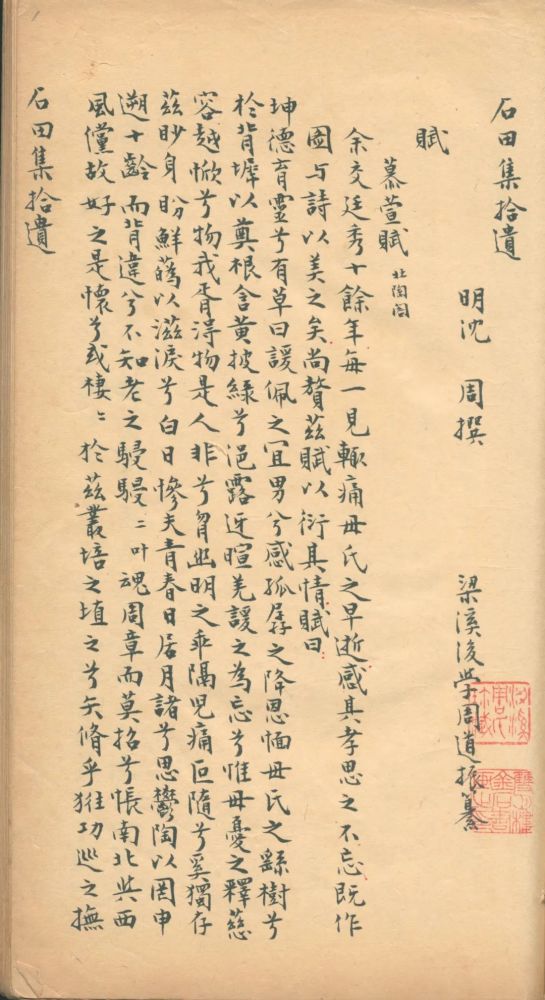 石田集拾遺
明沈　周撰　梁溪後學周道振纂
賦
慕萱賦 北陶閣
余交廷秀十餘年每一見輒痛母氏之早逝感其孝思之不忘既作
圖与詩以美之矣尚贅茲賦以衍其情賦曰
坤德育靈兮有草曰諼佩之宜男兮感孤孱之降恩愐母氏之繇樹兮
於背墀以奠根含黃披綠兮浥露迓暄羌諼之為忘兮惟母憂之釋慈
容越惚兮物我胥淂物是人非兮胷幽明之乖隔兒痛叵隨兮奚獨存
茲眇身盼鮮蘤以滋淚兮白日慘夫青春日居月諸兮思鬱陶以罔申
遡十齡而背違兮不知老之駸駸〻叶魂周章而莫招兮悵南北與西
風儻故好之是懷兮或棲〻於茲叢培之埴之兮矢脩乎雅功巡之撫
石田集拾遺